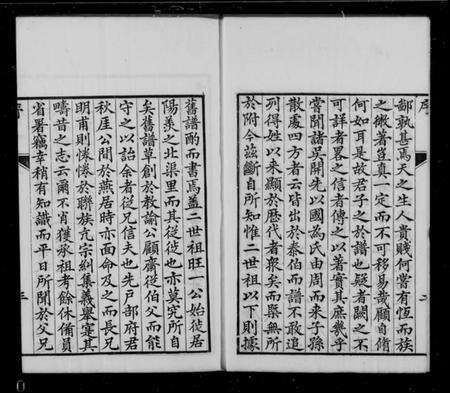 序
二
鄙孰甚焉天之生人貴賤何嘗有恆而族
之微著豈真一定而不可移易農顧自脩
何如耳是故君子之於譜也疑者闕之不
可詳者畧之信者傳之以著實其庶幾乎
嘗聞諸吳開先以國為氏由周而來子孫
散處四方者云皆出於泰伯而譜不敢追
列得姓以來顯於歷代者衆矣而槩無所
於附今茲斷自所知惟二世祖以下則據
舊譜酌而書焉蓋二世祖旺一公始徙居
陽羡之北渠里而其從徙也亦莫究所自
矣舊譜草創於教諭公顧齋從伯父而能
守之以詒余者從兄信夫也先戶部府君
秋厓公間於燕居時亦面命及之而長兄
明甫則惓惓於聯族亢宗糾集義舉寔其
疇昔之志云爾不肖獲承祖考餘休備員
省署竊幸稍有知識而平日所聞於父兄
序
三